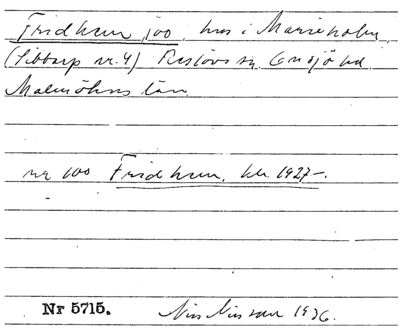 Fridhem, 100, hus i Marieholm
(Sibbarp nr. 4) Reslövs sn. Onsjö hd.
Malmöhus län
nr 100 Fridhem, kk 1927-.
Nr 5715.
Nils Nilsson 1936.